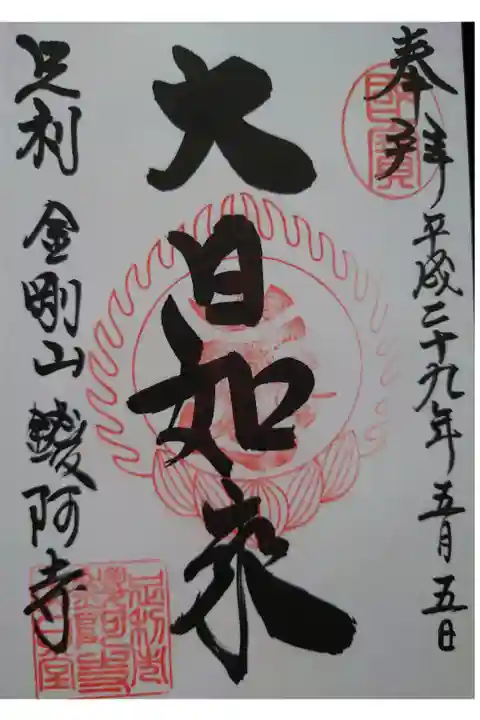 奉拝
平成二十九年五月五日
国寶
大日如来
足利 金剛山 鑁阿寺